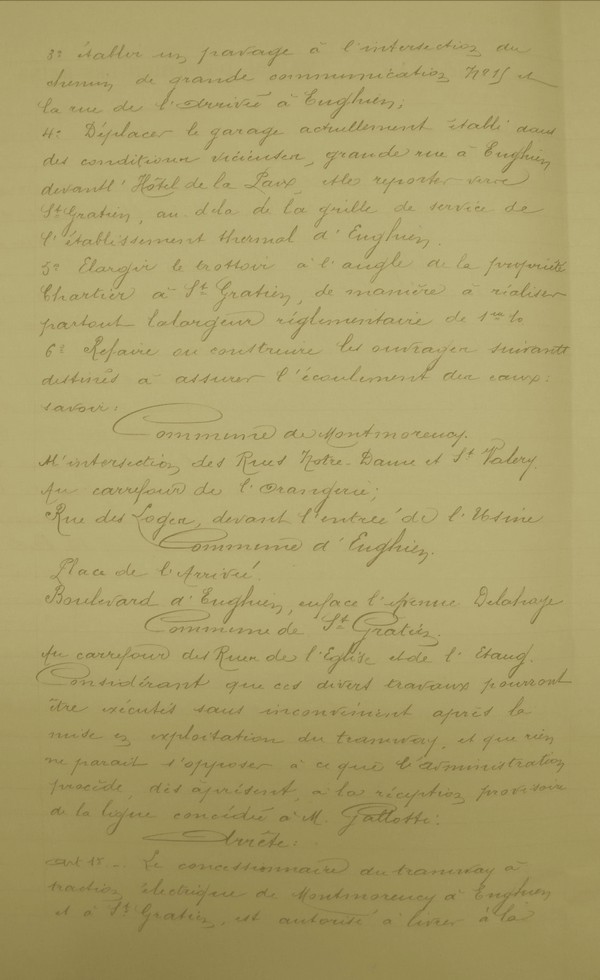 3º établir un pavage à l'intersection du
chemin de grande communication Nº15 et
la rue de l'Arrivée à Enghien;
4º Déplacer le garage actuellement établi dans
des conditions vicieuses, grande rue à Enghien
devant l'Hôtel de la Paix, et le reporter vers
St Gratien, au delà de la grille de service de
l'établissement thermal d'Enghien.
5º Elargir le trottoir à l'angle de la propriété
Chartier à St Gratien, de manière à réaliser
partout la largeur réglementaire de 1m
6º Refaire ou construire les ouvrages suivants
destinés à assurer l'écoulement des eaux:
savoir:
Commune de Montmorency.
A l'intersection des Rues Notre-Dame et St Valery.
Au carrefour de l'Orangerie;
Rue des Loges, devant l'entrée de l'Usine
Commune d'Enghien.
Place de l'Arrivée.
Boulevard d'Enghien, en face l'Avenue Delahaye
Commune de St Gratien.
Au carrefour des Rues de l'Eglise et de l'Etang.
Considérant que ces divers travaux pourront
être exécutés sans inconvénient après la
mise en exploitation du tramway, et que rien
ne parait s'opposer à ce que l'administration
procède, dès à présent, à la réception provisoire
de la ligne concédée à M. Gallotti:
Arrête:
Art 1er - Le concessionnaire du tramway à
traction électrique de Montmorency à Enghien
et à St Gratien, est autorisé à livrer à la